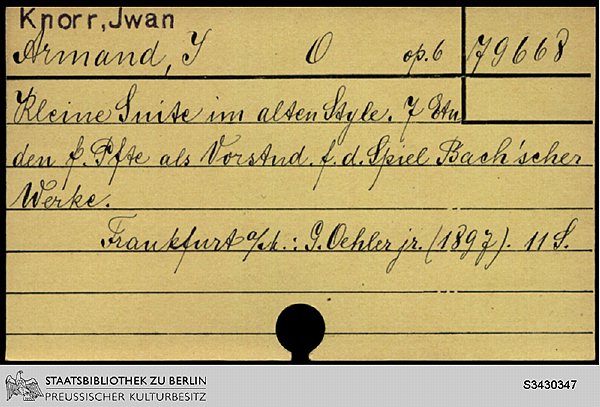 Knorr, Jwan
Armand, J O op. 6 79668
Kleine Suite im alten Style. 7 Etu
den f. Pfte als Vorstud. f. d. Spiel Bach'scher
Werke.
Frankfurt a/M.: G. Oehler jr. (1897). 11 S.
STAATSBIBLIOTHEK ZU BERLIN
PREUSSISCHER KULTURBESITZ
S3430347